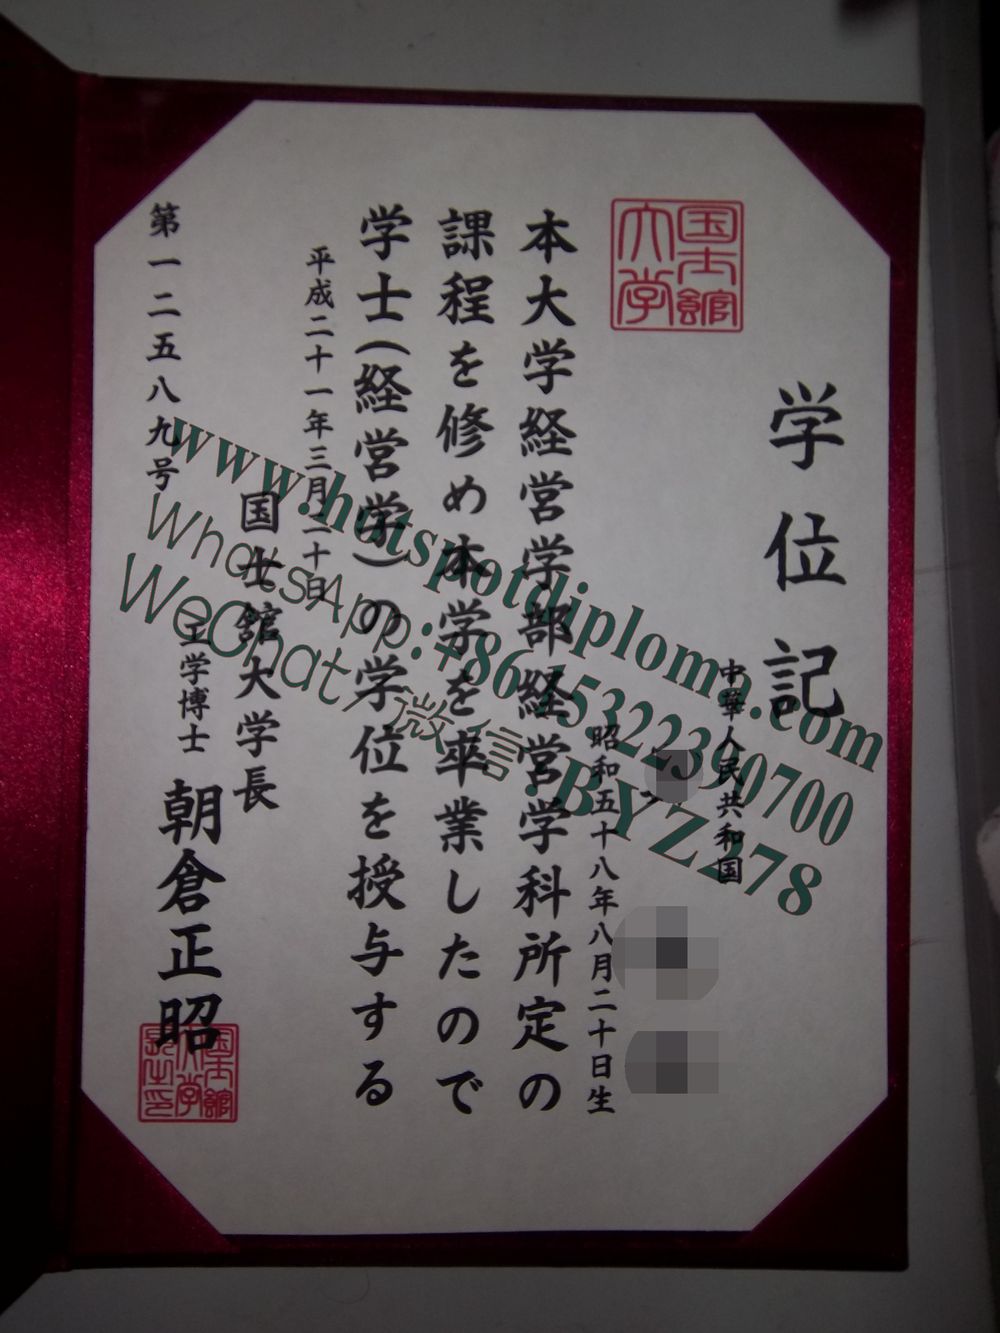 学位記
国士館
大学
中華人民共和国
昭和五十八年八月二十日生
本大学経営学部経営学科所定の
課程を修め本学を卒業したので
学士(経営学)の学位を授与する
平成二十一年三月二十日
国士舘大学長
工学博士 朝倉正昭
国士館
大学
長之印
第一二五八九号
www.hotspotdiploma.com
WhatsApp:+8615322390700
WeChat/微信:BYZ278